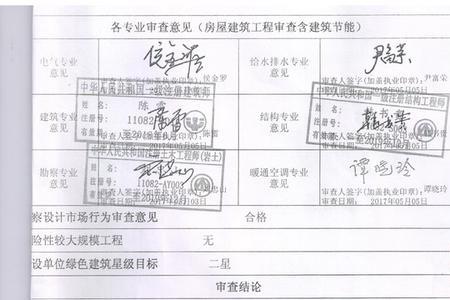 各专业审查意见（房屋建筑工程审查含建筑节能）
电气专业意见
审查人签字(加盖执业印章): 侯金罗
给水排水专业意见
审查人签字(加盖执业印章): 尹富荣
审查日期: 2017年05月05日
中华人民共和国一级注册建筑师
姓名: 陈雷
注册号: 11082
有效期: 至2019年
建筑专业意见
审查人签字(加盖执业印章): 陈雷
审查日期: 2017年05月05日
中华人民共和国一级注册结构工程师
姓名:
注册号:
有效期:
结构专业意见
审查日期: 2017年05月05日
中华人民共和国注册土木工程师(岩土)
姓名:
注册号: 11082-AY003
有效期: 至2019年12月
勘察专业意见
暖通空调专业意见
谭晓玲
审查人签字(加盖执业印章): 谭晓玲
审查日期: 2017年05月05日
察设计市场行为审查意见 合格
险性较大规模工程 无
设单位绿色建筑星级目标 二星
审查结论